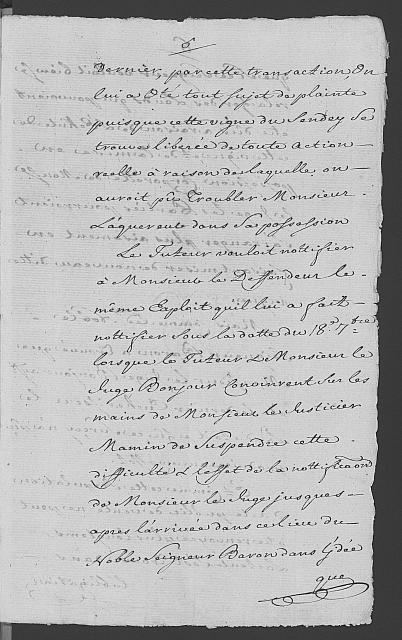 6
Dernier par cette transaction On
lui a Oté tout sujet de plainte
puisque cette vigne du Sendey Se
trouve liberée de toute action
reelle à raison de laquelle, on
auroit pû Troubler Monsieur
L'aquereur dans Sa possession
Le Tuteur vouloit nottifier
à Monsieur le Deffendeur le
même Exploit qu'il lui a fait
nottifier sous la datte du 18e. 7bre.
lorsque le Tuteur & Monsieur le
Juge Bonjour Convinrent Sur les
mains de Monsieur le Justicier
Mamin de Suspendre cette
difficulté & l'effet de la nottification
de Monsieur le Juge jusques
apres l'arrivée dans ce lieu du
Noble Seigneur Baron dans l'idée
que